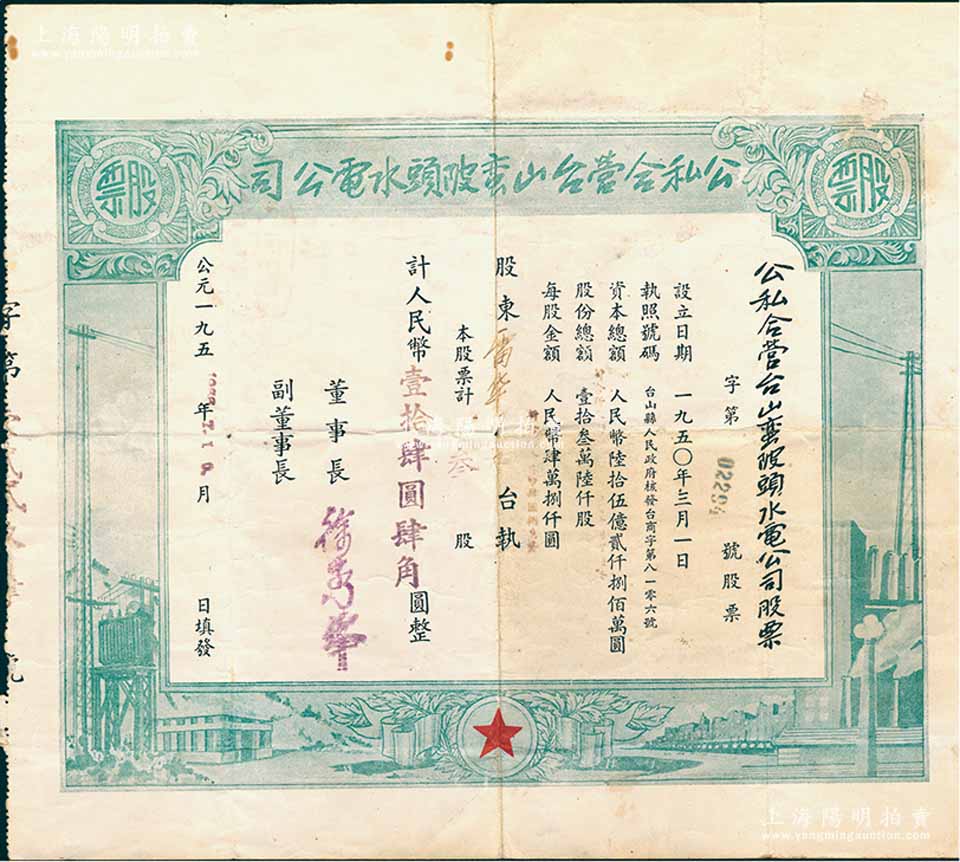 上海陽明拍賣
www.yangmingauction.com
股票
司公電水頭陂蛮山台营合私公
股票
公私合营台山蛮陂頭水電公司股票
字第 02294 號股票
設立日期 一九五〇年三月一日
執照號碼 台山縣人民政府核發台商字第八一零六號
資本總額 人民幣陸拾伍億貳仟捌佰萬圓
股份總額 壹拾叁萬陸仟股
每股金額 人民幣肆萬捌仟圓
股東 台執
本股票計 叁 股
計人民幣壹拾肆圓肆角圓整
董事長
副董事長
公元一九五 年 月 日填發
字第
號
上海陽明拍賣
上海陽明拍賣
www.yangmingauction.com